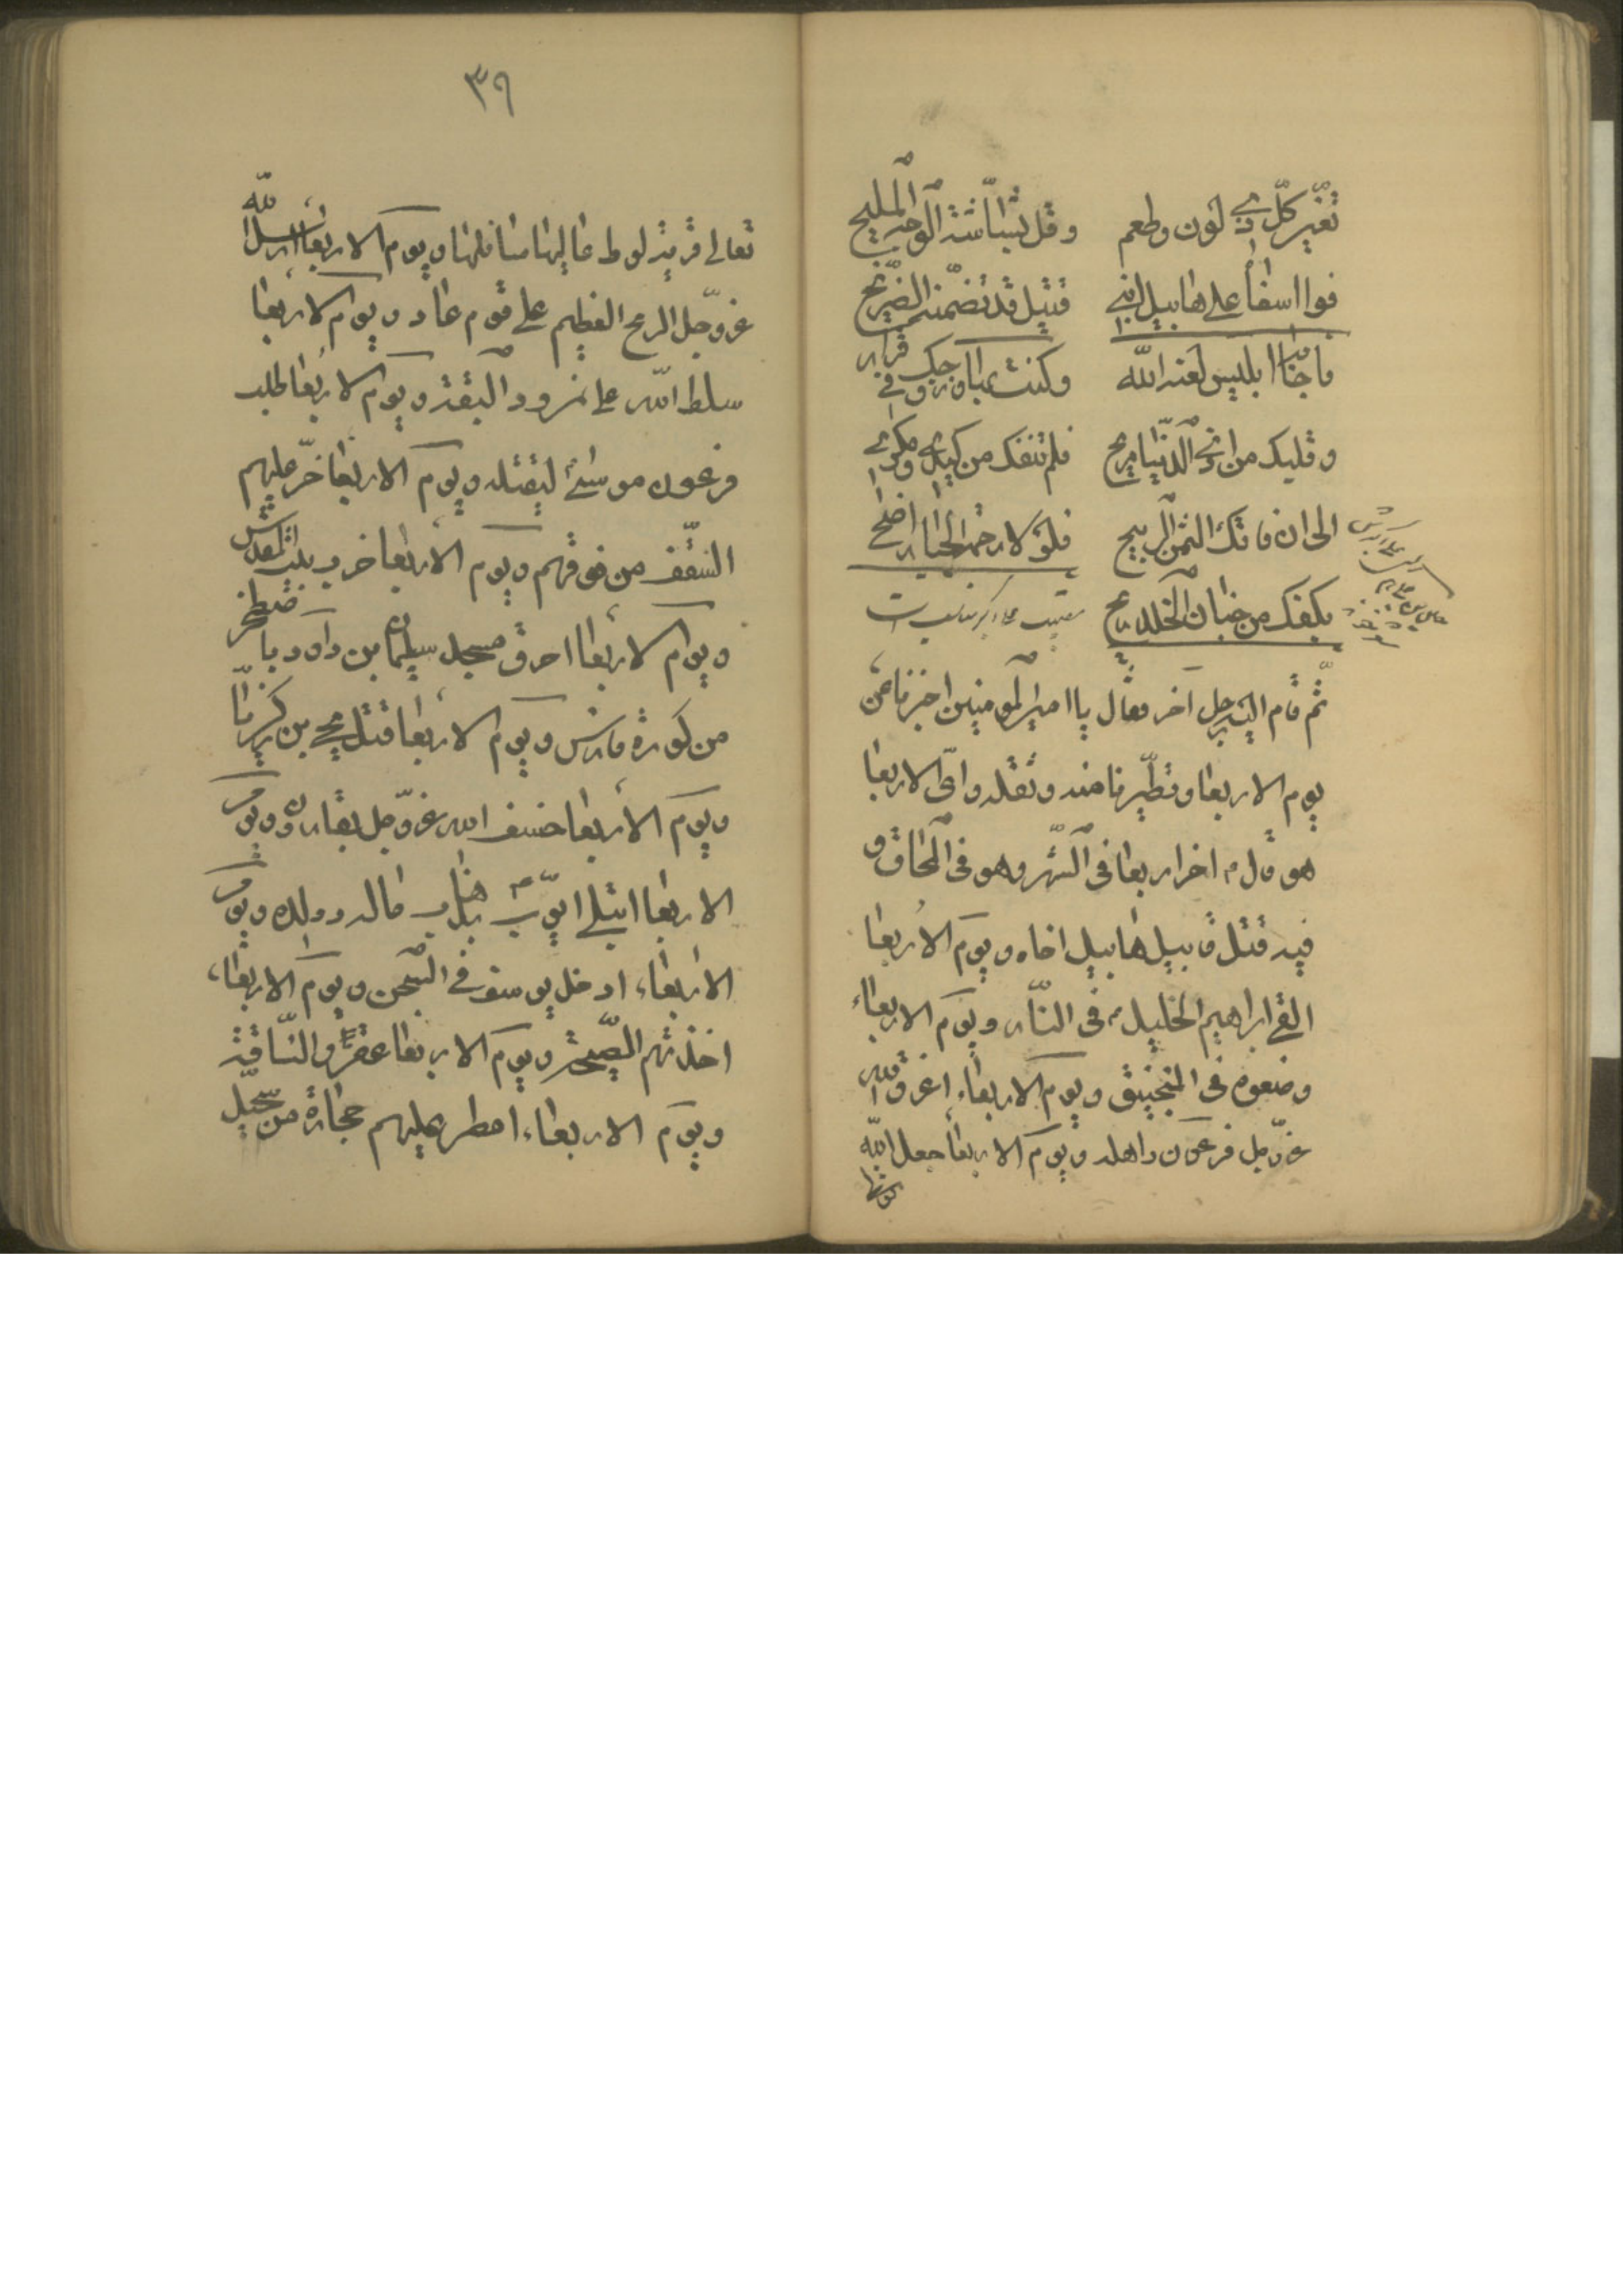 تغيّر كلّ ذي لون وطعم وقلّ بشاشة الوجه المليح
فوا اسفا على هابيل ابني قتيل قد تضمّنه الضريح
فاجابه ابليس لعنه الله
وكنت بها وزوجك في قرار
وقلبك من اذى الدّنيا مريح فلم تنفك من كيدي ومكري
الى ان فاتك الثمن الربيح فلولا رحمة الجبّار اضحى
بكفك من جنان الخلد ريح
ثمّ قام اليه رجل آخر فقال يا امير المومنين اخبرنا عن
يوم الاربعا وتطيّرنا منه وثقله واىّ الاربعا
هو قال ع اخر اربعا فى الشّهر وهو فى المحاق و
فيه قتل قابيل هابيل اخاه ويوم الاربعا
القى ابراهيم الخليل ع فى النّار ويوم الاربعاء
وضعوه فى المنجنيق ويوم الاربعاء اغرق الله
عزّ وجل فرعون واهله ويوم الاربعا جعل الله
٣٩
تعالى قرية لوط عاليها سافلها ويوم الاربعا ارسل الله
عز وجل الريح العظيم على قوم عاد ويوم الاربعا
سلط الله على نمرود البقة ويوم الاربعا طلب
فرعون موسى ليقتله ويوم الاربعا خرّ عليهم
السّقف من فوقهم ويوم الاربعا خرب بيت المقدس
ويوم الاربعا احرق مسجد سليمان بن داود باصطخر
من كورة فارس ويوم الاربعا قتل يحيى بن زكريّا
ويوم الاربعا خسف الله عزّ وجل بقارون ويوم
الاربعا ابتلى ايّوب ع بذهاب ماله وولده ويوم
الاربعاء ادخل يوسف فى السّجن ويوم الاربعاء
اخذتهم الصّيحة ويوم الاربعا عقروا النّاقة
ويوم الاربعاء امطر عليهم حجارة من سجيل